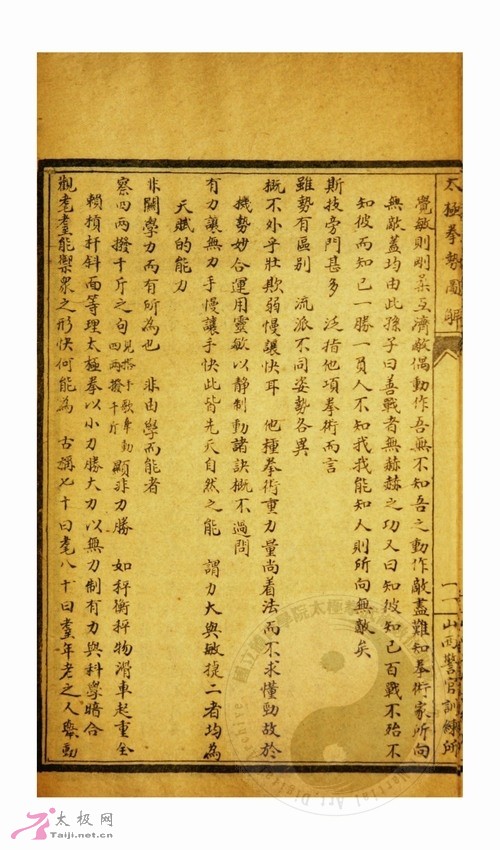 太極拳勢圖解
一一
山西警官訓練所
覺敏則剛柔互濟敵偶動作吾無不知吾之動作敵盡難知拳術家所向
無敵蓋均由此孫子曰善戰者無赫赫之功又曰知彼知己百戰不殆不
知彼而知己一勝一負人不知我我能知人則所向無敵矣
斯技旁門甚多　泛指他項拳術而言
雖勢有區別　流派不同姿勢各異
概不外乎壯欺弱慢讓快耳　他種拳術重力量尚着法而不求懂勁故於
機勢妙合運用靈敏以靜制動諸訣概不過問
有力讓無力手慢讓手快此皆先天自然之能　謂力大與敏捷二者均為
天賦的能力
非關學力而有所為也　非由學而能者
察四兩撥千斤之句見搭手歌牽動四兩撥千斤顯非力勝　如秤衡秤物滑車起重全
賴槓杆斜面等理太極拳以小力勝大力以無力制有力與科學暗合
觀耄耋能禦眾之形快何能為　古稱七十曰耄八十曰耋年老之人舉動
太极网
Taiji.net.cn